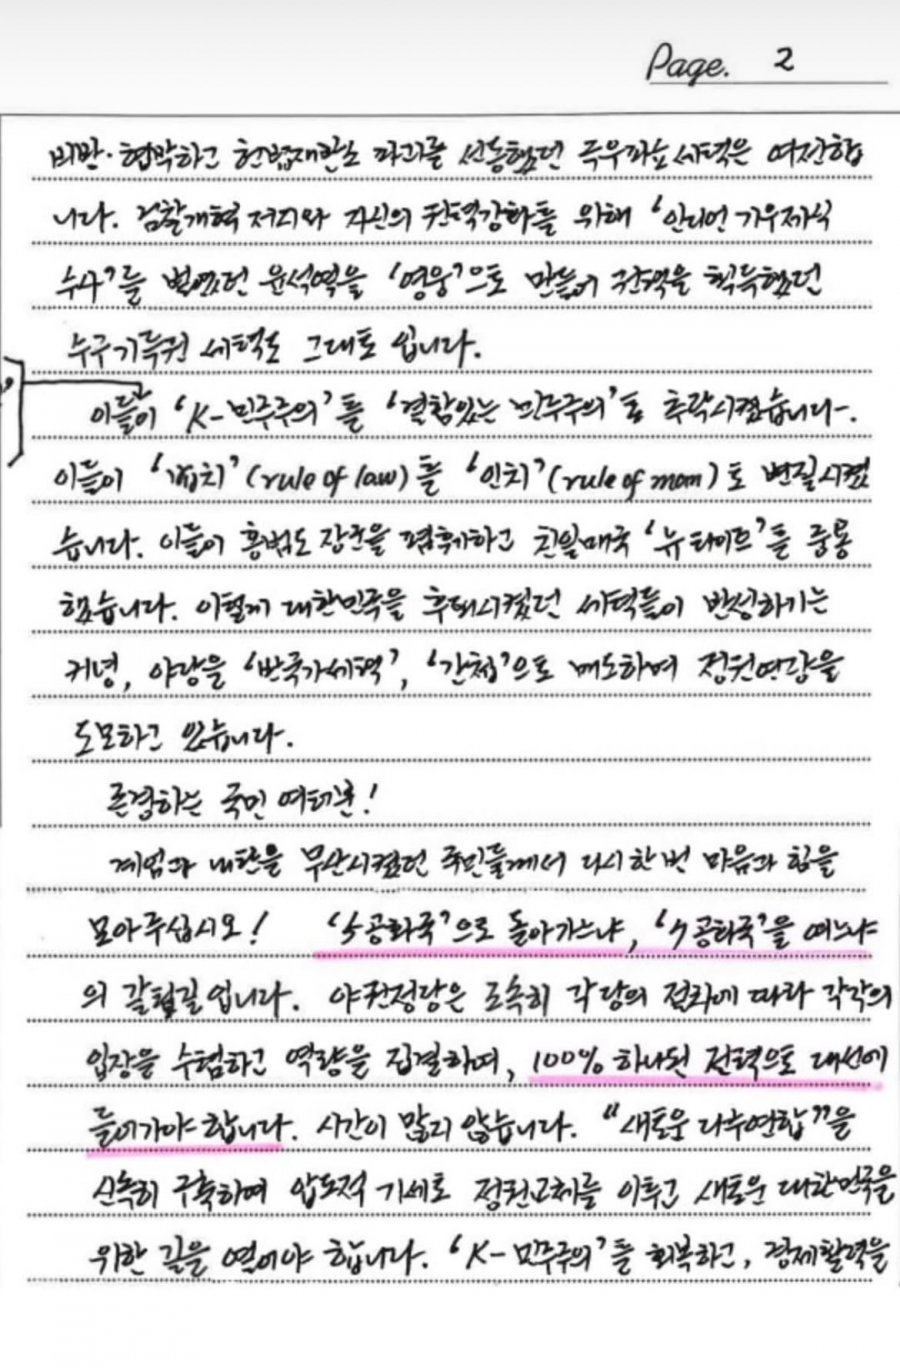 Page. 2
비난·협박하고 헌법재판소 파괴를 선동했던 극우파쇼세력은 여전합
니다. 검찰개혁 저지와 자신의 권력강화를 위해 '인디언 기우제식
수사'를 벌였던 윤석열을 '영웅'으로 만들어 권력을 획득했던
수구기득권 세력도 그대로 입니다.
이들이 'K-민주주의'를 '결함있는 민주주의'로 추락시켰습니다.
이들이 '법치'(rule of law)를 '인치'(rule of mom)로 변질시켰
습니다. 이들이 홍범도 장군을 폄훼하고 친일매국 '뉴라이트'를 중용
했습니다. 이렇게 대한민국을 후퇴시켰던 세력들이 반성하기는
커녕, 야당을 '반국가세력', '간첩'으로 매도하며 정권연장을
도모하고 있습니다.
존경하는 국민 여러분!
계엄과 내란을 무산시켰던 국민들께서 다시 한 번 마음과 힘을
모아주십시오! '5공화국'으로 돌아가느냐, '7공화국'을 여느냐
의 갈림길입니다. 야권정당은 조속히 각 당의 절차에 따라 각각의
입장을 수렴하고 역량을 집결하며, 100% 하나된 전력으로 대선에
들어가야 합니다. 시간이 많지 않습니다. "새로운 다수연합"을
신속히 구축하여 압도적 기세로 정권교체를 이루고 새로운 대한민국을
위한 길을 열어야 합니다. 'K-민주주의'를 회복하고, 경제활력을